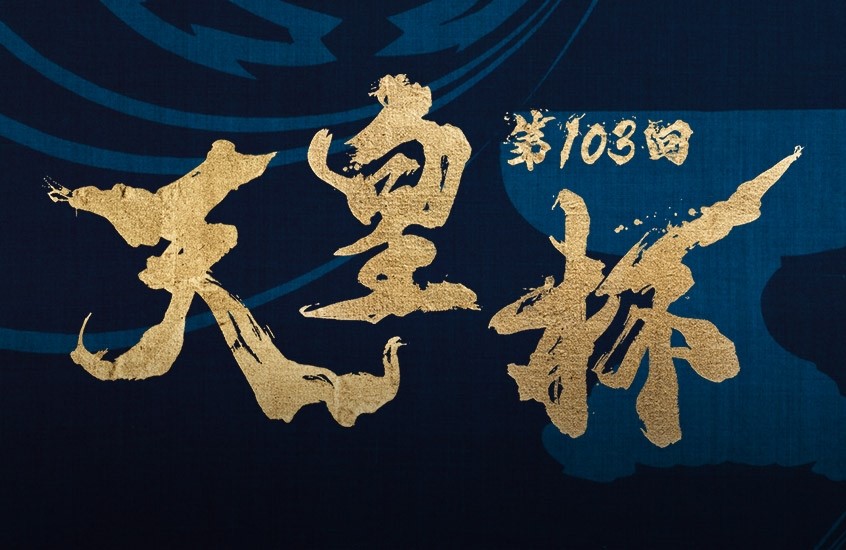 第103回
天皇杯